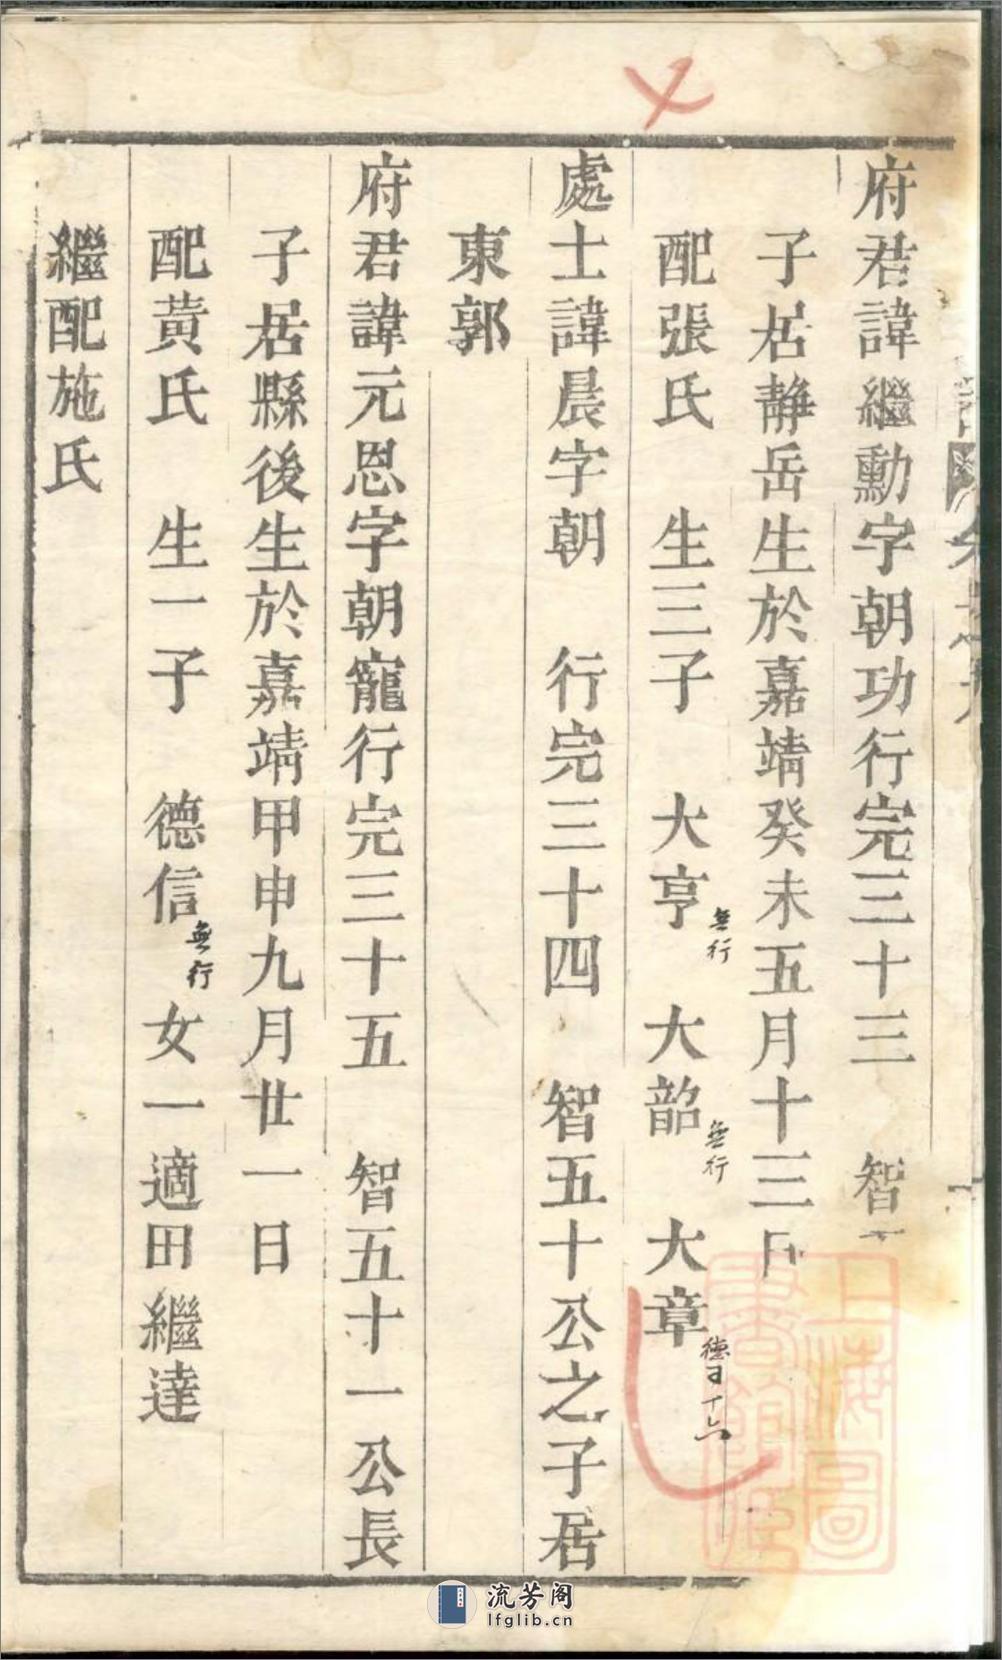 府君諱繼勳字朝功行完三十三 智
子居靜岳生於嘉靖癸未五月十三日
配張氏 生三子 大亨無行 大韶無行 大章德百十六
處士諱晨字朝 行完三十四 智五十公之子居
東郭
府君諱元恩字朝寵行完三十五 智五十一公長
子居縣後生於嘉靖甲申九月廿一日
配黃氏 生一子 德信無行 女一適田繼達
繼配施氏
上海圖書館藏
流芳阁
lfglib.cn